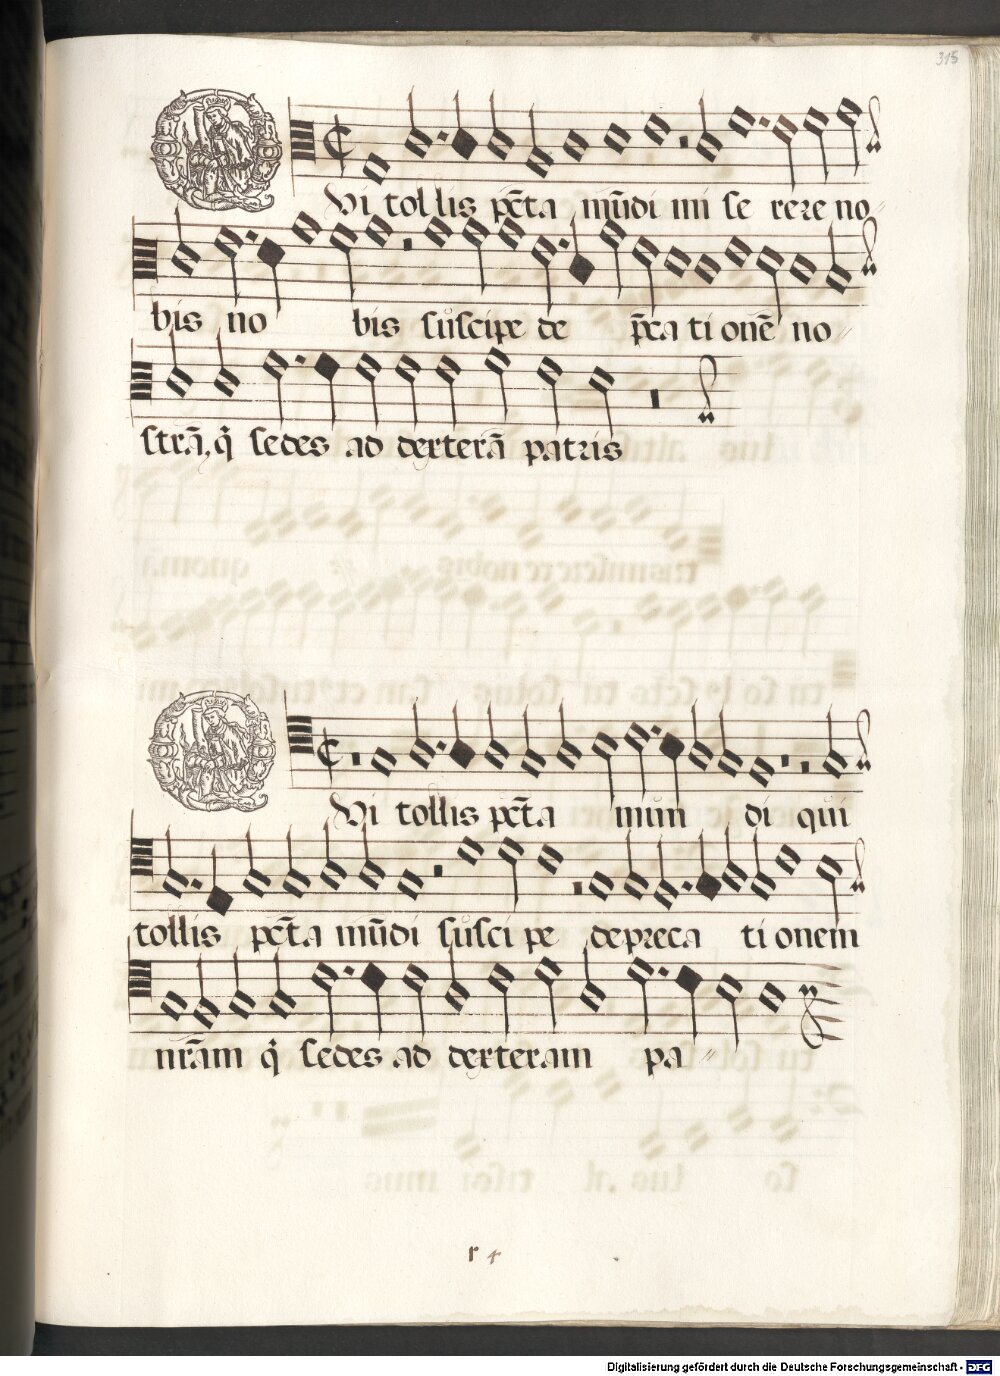 315
Qvi tollis pc̄ta mūdi mi se rere no
bis no bis suscipe de p̄ca ti onē no
strā, q̇ sedes ad dexterā patris
Qvi tollis pc̄ta mun di qui
tollis pc̄ta mūdi susci pe depreca ti onem
nr̄am q̇ sedes ad dexteram pa
r 4
Digitalisierung gefördert durch die Deutsche Forschungsgemeinschaft - DFG